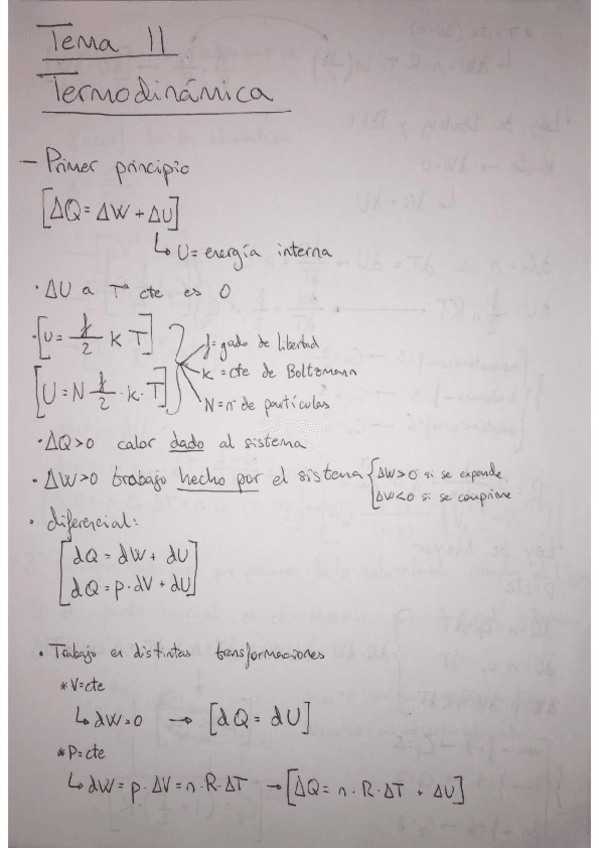 Tema 11
Termodinámica
- Primer principio
[ΔQ = ΔW + ΔU]
↳ U = energía interna
· ΔU a Tª cte es 0
· [U = f/2 k·T]
[U = N f/2 · k·T]
f = gado de libertad
k = cte de Boltzmann
N = nº de partículas
· ΔQ>0 calor dado al sistema
· ΔW>0 trabajo hecho por el sistema { ΔW>0 si se expande
ΔW<0 si se comprime
· diferencial:
[dQ = dW + dU
dQ = p·dV + dU]
· Trabajo en distintas transformaciones
* V=cte
↳ dW=0 → [dQ = dU]
* P=cte
↳ dW = p·ΔV = n·R·ΔT → [ΔQ = n·R·ΔT + ΔU]